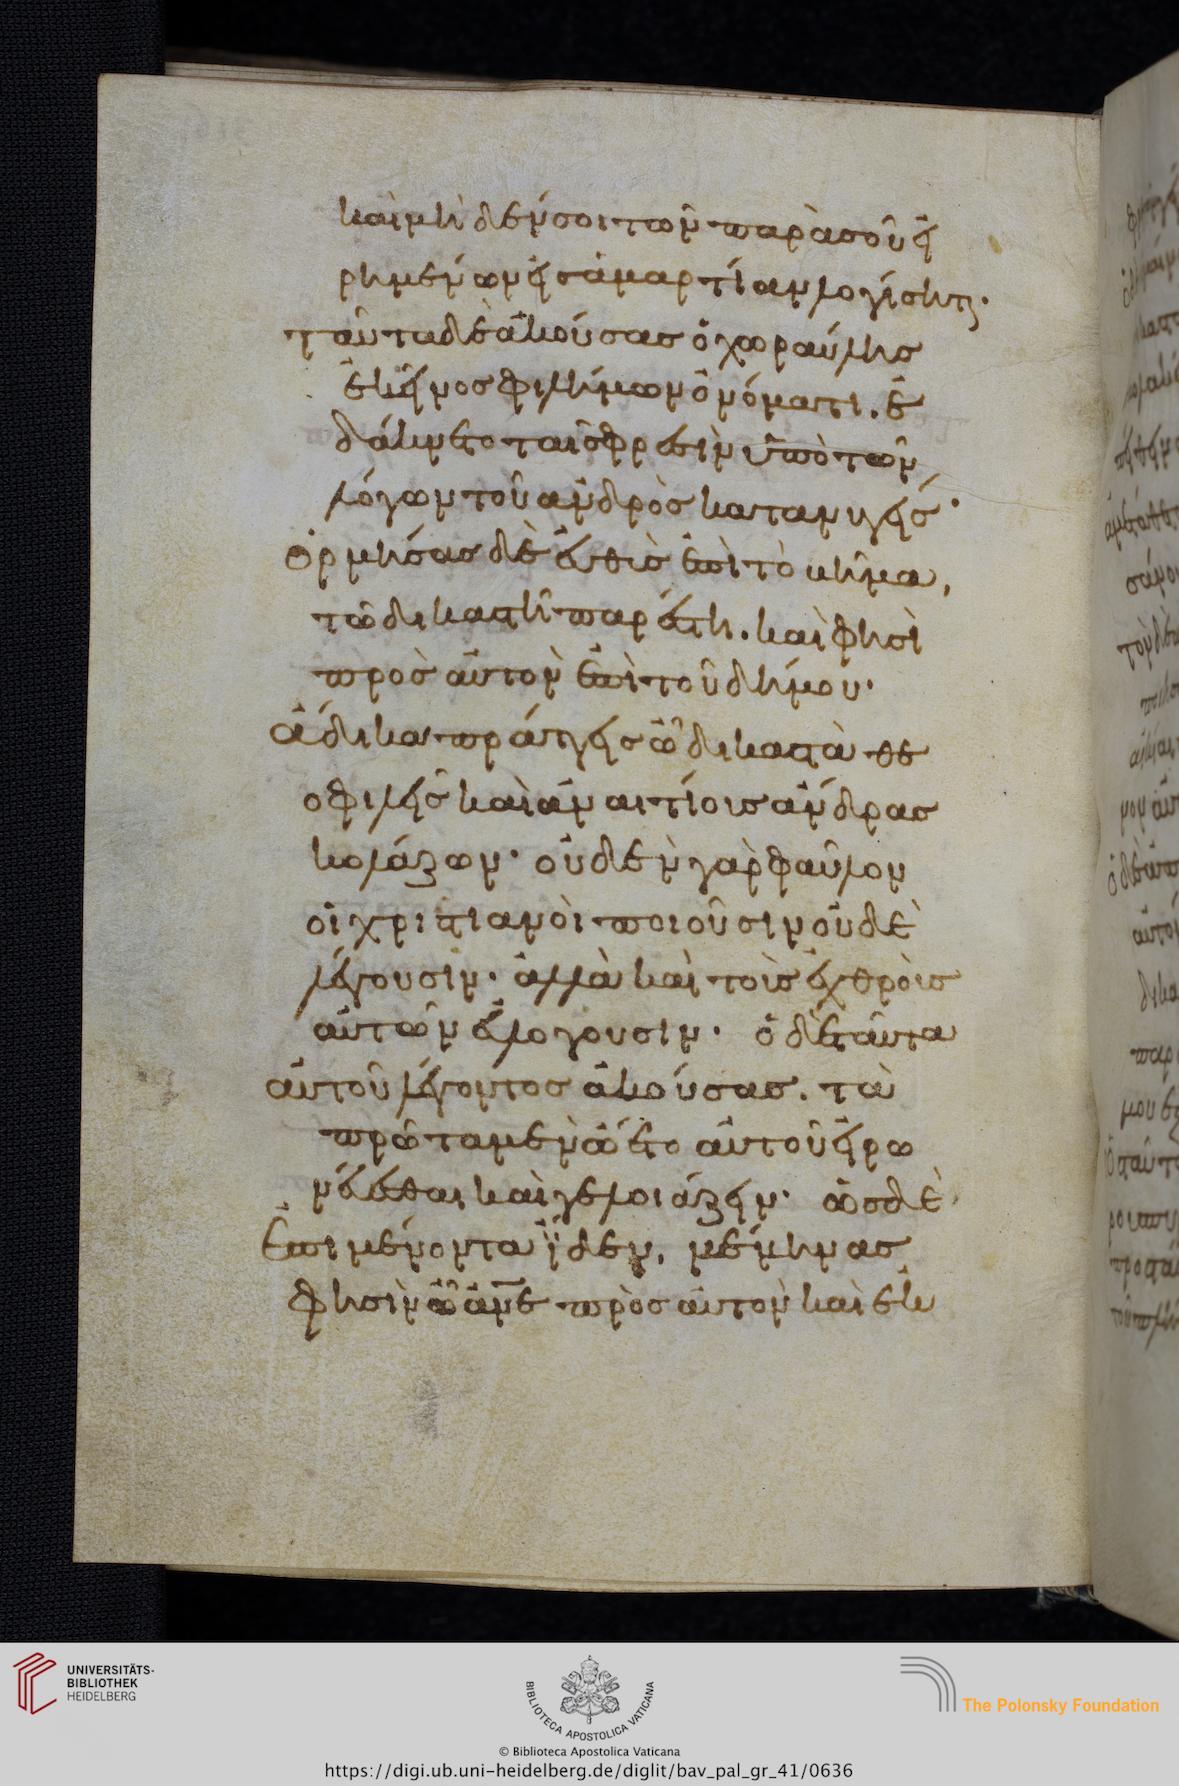 καὶ μηδέν σοι τῶν παρὰ σοῦ εἰ
ρημένων εἰς ἁμαρτίαν λογίσηται·
ταῦτα δὲ ἀκούσας ὁ χοραύλης
ἐκεῖνος φιλήμων ὀνόματι. ἐ
δάκνετο ταῖς φρεσὶν ὑπὸ τῶν
λόγων τοῦ ἀνδρὸς κατανυγείς·
ὁρμήσας δὲ εὐθὺς ἐπὶ τὸ βῆμα,
τῶ δικαστῆ παρέστη. καὶ φησὶ
πρὸς αὐτὸν ἐπὶ τοῦ δήμου·
ἄδικα πράττεις ὦ δικαστὰ θε
οφιλεῖς καὶ ἀναιτίους ἄνδρας
κολάζων· οὐδὲν γὰρ φαῦλον
οἱ χριστιανοὶ ποιοῦσιν οὐδὲ
λέγουσιν· ἀλλὰ καὶ τοὺς ἐχθροὺς
αὐτῶν εὐλογοῦσιν· ὁ δὲ ταῦτα
αὐτοῦ λέγοντος ἀκούσας. τὰ
πρῶτα μὲν ὤετο αὐτὸν εἰρω
νεύεσθαι καὶ γελοιάζειν· ὡς δὲ
ἐπιμένοντα ἴδεν, μέμηνας
φησὶν ὦ ἄνε πρὸς αὐτὸν καὶ ἐκ
UNIVERSITÄTS-
BIBLIOTHEK
HEIDELBERG
BIBLIOTECA APOSTOLICA VATICANA
The Polonsky Foundation
© Biblioteca Apostolica Vaticana
https://digi.ub.uni-heidelberg.de/diglit/bav_pal_gr_41/0636